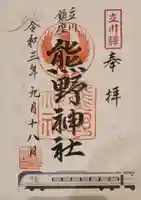 立川驛
奉拝
立川
鎮座
熊野神社
令和三年元月十八日